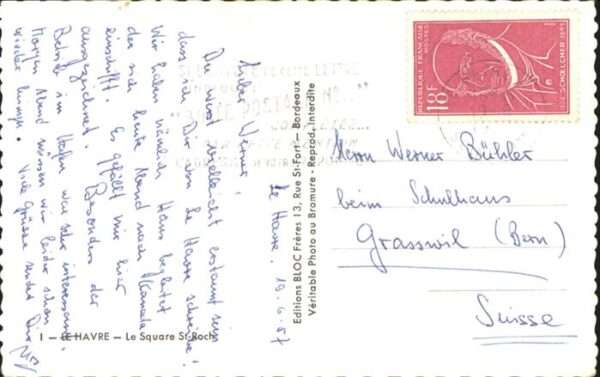 Le Havre, 19.6.57
Lieber Werner,
Du wirst vielleicht erstaunt sein
dass ich Dir von Le Havre schreibe!
Wir haben nämlich Hans begleitet
der sich heute Abend nach Kanada
einschifft. Es gefällt mir hier
ausgezeichnet. Besonders der
Besuch im Hafen war sehr interessant.
Morgen Abend müssen wir leider schon
wieder heim. Viele Grüsse sendet Dir
1 — LE HAVRE — Le Square St-Roch
Editions BLOC Frères 13, Rue St-Fort — Bordeaux
Véritable Photo au Bromure - Reprod. Interdite
REPUBLIQUE FRANÇAISE
POSTES
18F
V. SCHOELCHER
Herrn Werner Bühler
beim Schulhaus
Grasswil (Bern)
Suisse